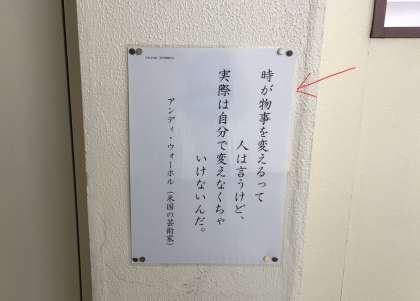 時が物事を変えるって
人は言うけど、
実際は自分で変えなくちゃ
いけないんだ。
アンディ・ウォーホル（米国の芸術家）